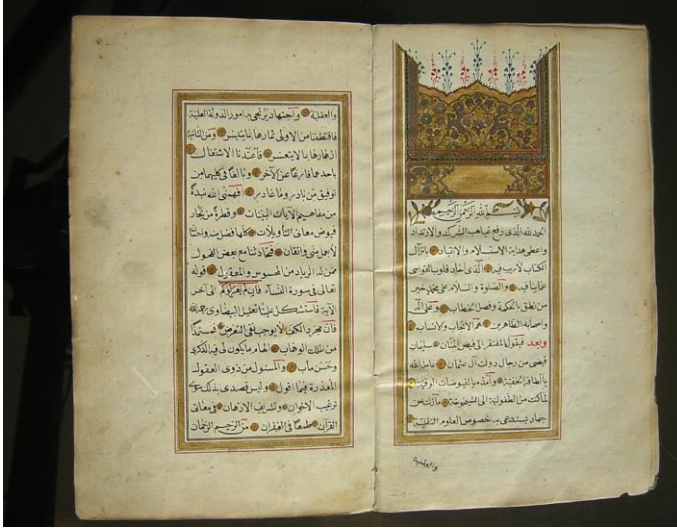 بسم الله الرحمن الرحيم
الحمد لله الذى رفع غياهب الشرك والارتداد
واعطى هداية الاستسلام والانقياد باتزال
الكتاب لاريب فيه الذى احاد قلوب القوسى
عما ينافيه والصلوة والسلام على محمد خير
من نطق بالحكمة وفصل الخطاب وعلى آله
واصحابه الطاهرين هم الانجاب والانساب
وبعد فيقول المفتقر الى فيض المنان سليمان
فيضى من رجال دولت آل عثمان عامله الله
بالطافه الخفية وامده بالفيوضات الوفية
لما كنت من الطفولية الى الشيخوخة مازلت عن
جهاد يستدعى بـه خصوص العلوم النقلية
والعقلية
والعقلية واجتهاد يرتجى به امور الدولة العلية
فاقتطفنا من الاولى ثمارها ومن الثانية
ازهارها فاعتدنا الاشتغال
باحدهما فارغا عن الآخر ونالغا فى كليهما من
توفيق من نادر وما غادر فهمنى الله نبذة
من مفاهيم الآيات البينات وقطرة من بحار
فيوض معانى التأويلات
لا بعمل منى واتقان مع بعض الفحول
ممن له الرياد من المحسوس والمعقول قوله
تعالى فى سورة الى آخر
الآية فاستشكل علينا تعليل البيضاوى
فان مجرد الكفر لا يوجب نفى التعرض فمستمدا
من الملك الوهاب الهام ما يكون لى فيه الذكرى
وحسن مآب والمسئول من ذوى العقول
المعذرة فيما اقول وليس قصدى بذلك سوى
ترغيب الاخوان وتشريف الاذهان فى معانى
القرآن طمعا فى الغفران من الرحيم الرحمان